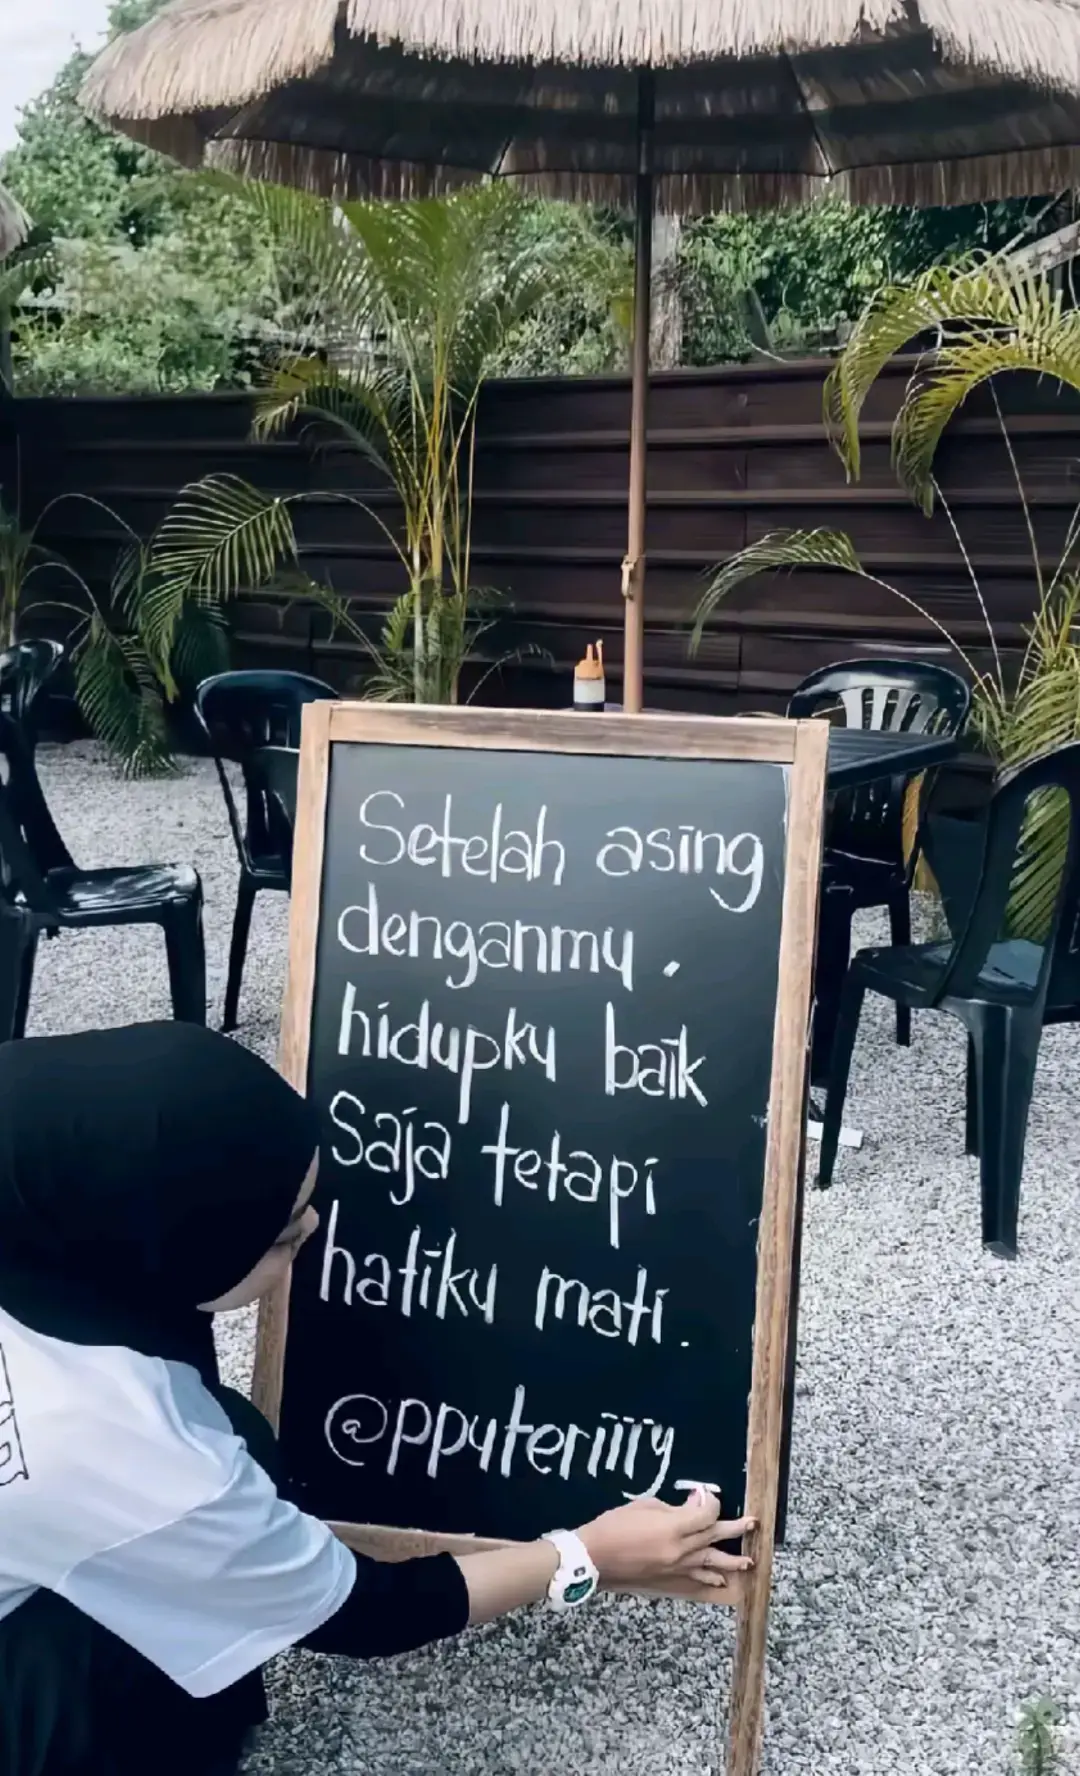 Setelah asing
denganmu,
hidupku baik
saja tetapi
hatiku mati.
@pputeriiiy_